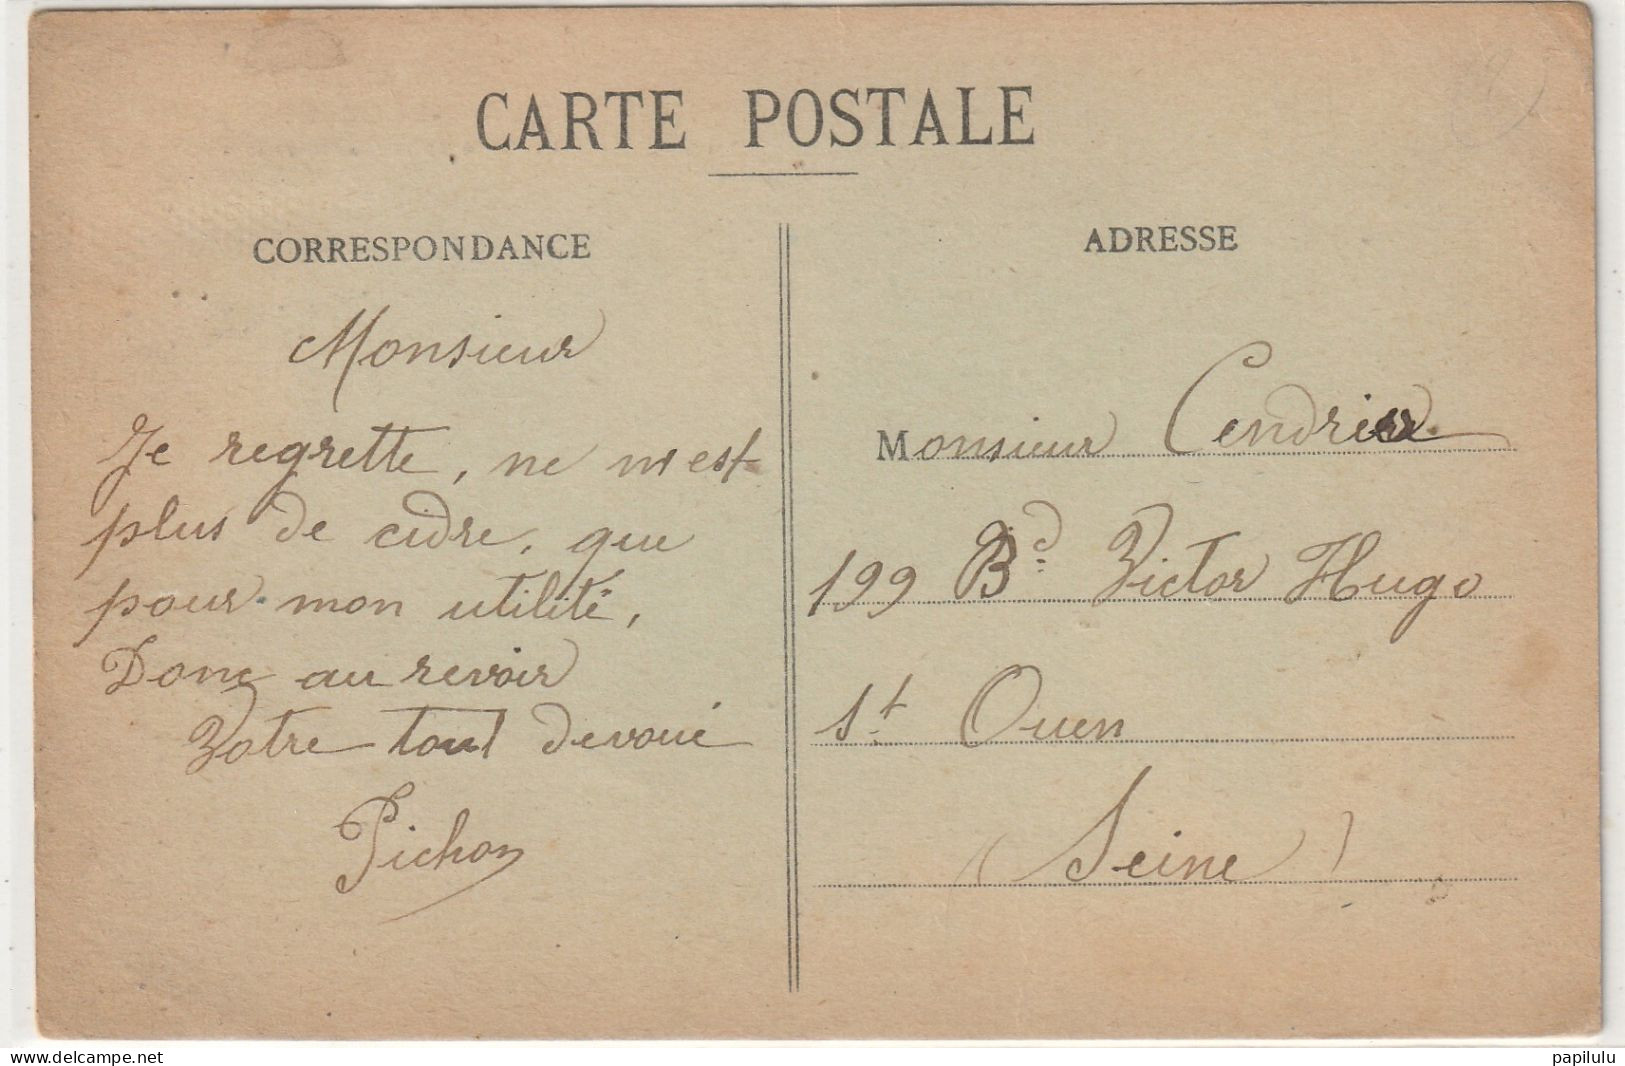 CARTE POSTALE
CORRESPONDANCE
Monsieur
Je regrette, ne m'est
plus de cidre, que
pour mon utilité,
Donc au revoir
Votre tout devoué
Pichon
ADRESSE
Monsieur Cendrier
199 Bd Victor Hugo
St Ouen
(Seine)
www.delcampe.net
papilulu